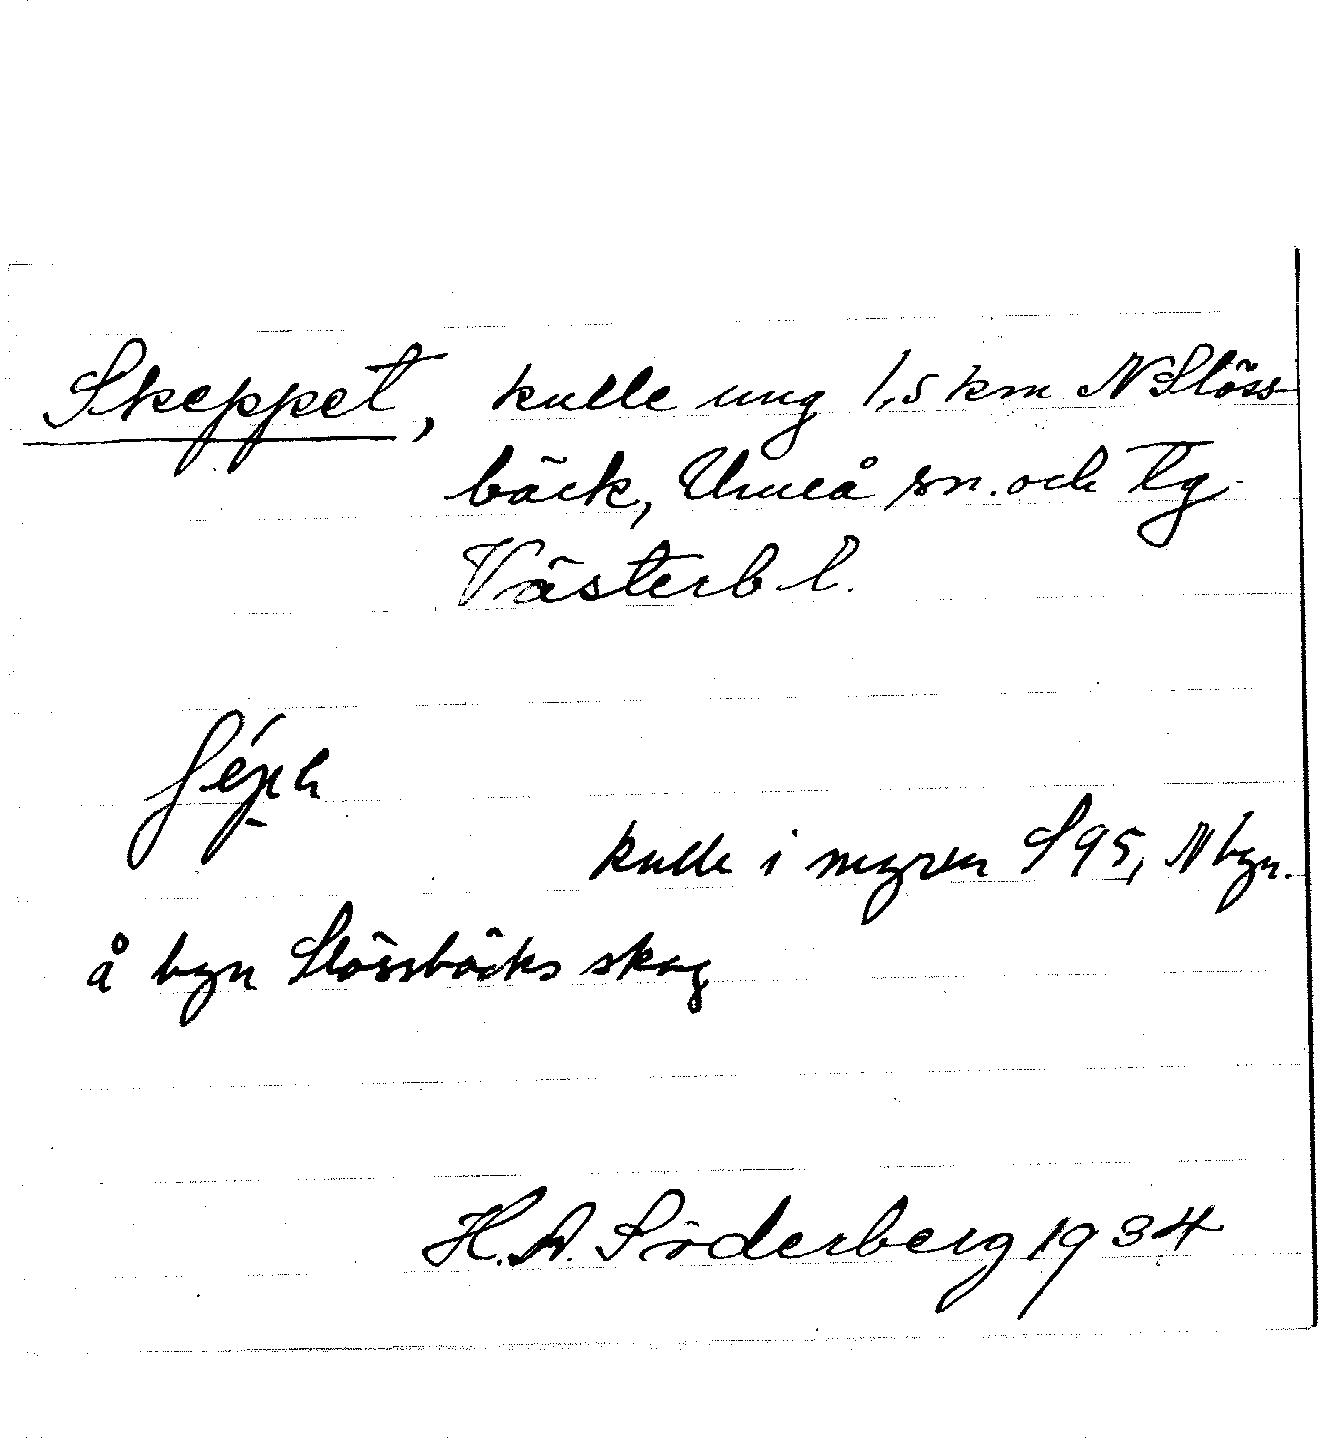 Skeppet, kulle ung 1,5 km N Slöss-
bäck, Umeå sn. och tg.
Västerb l.
kulle i myren S 95, N byn.
å byn Slössbäcks skog
H. D. Söderberg 1934